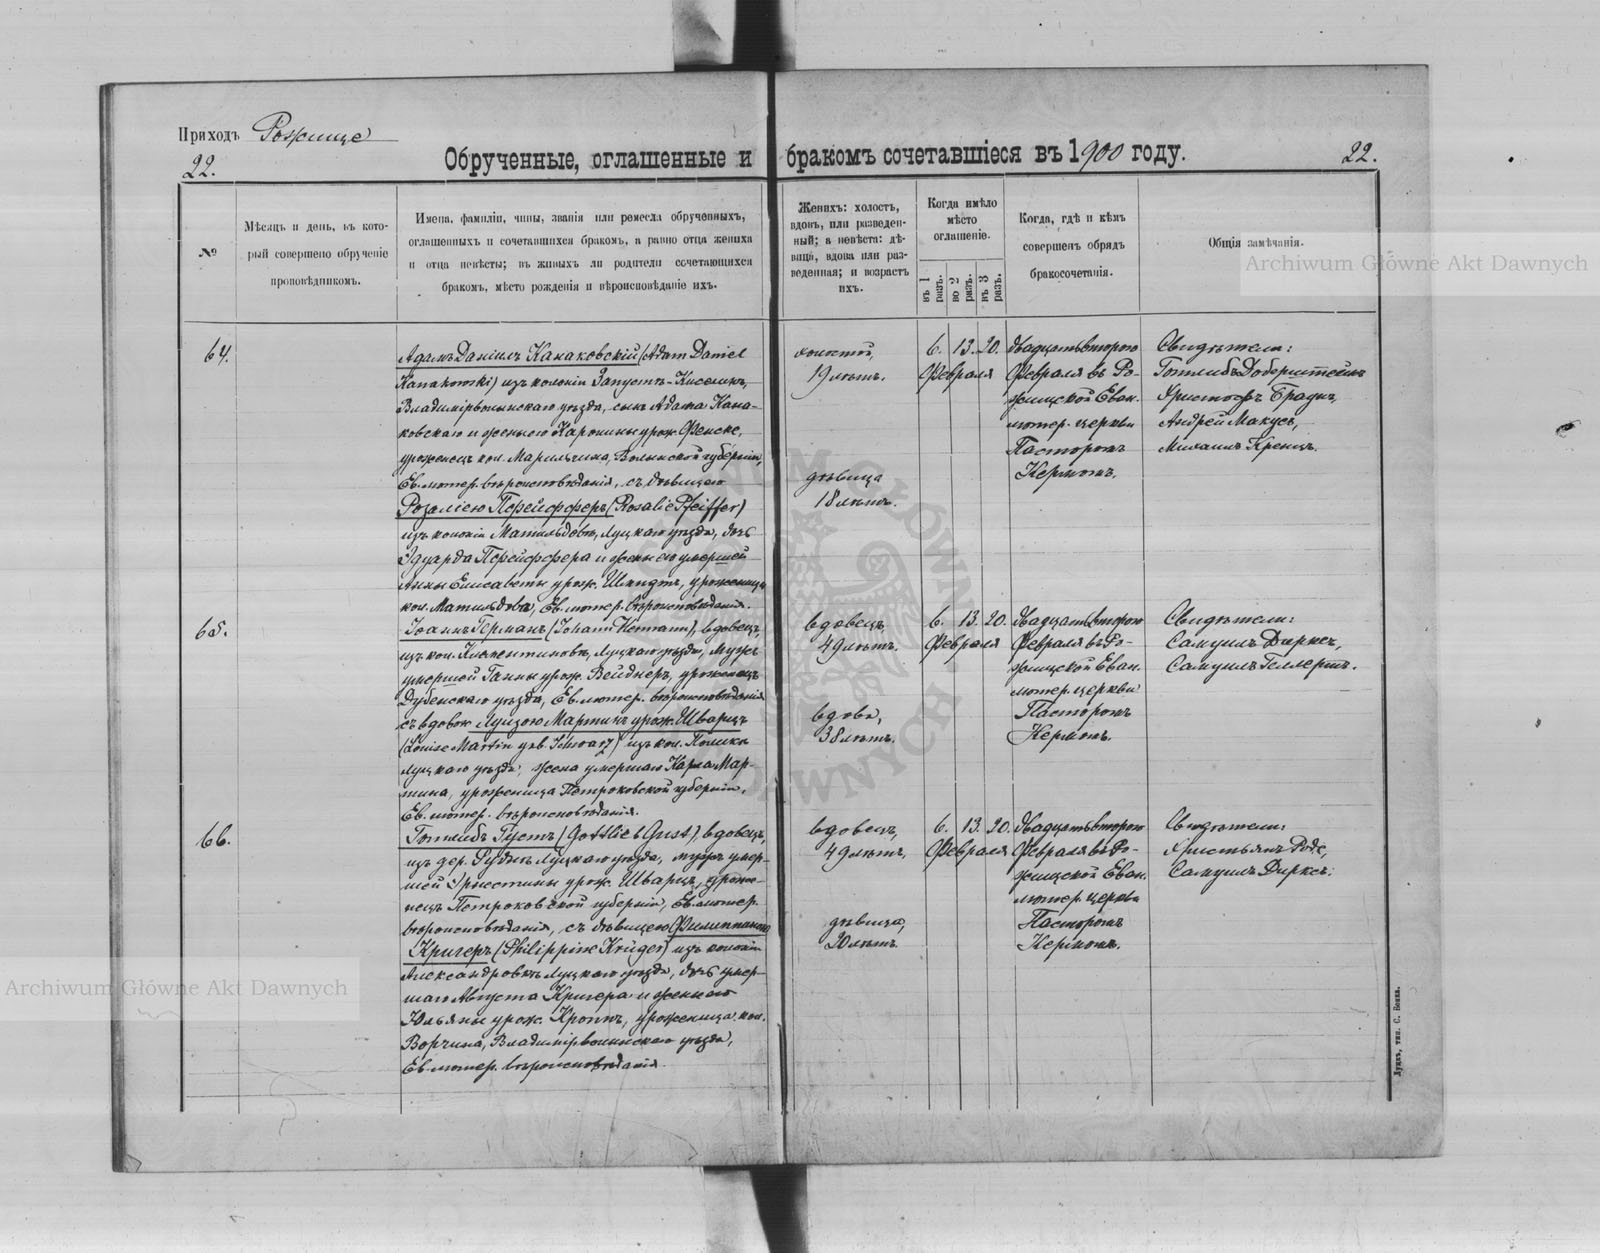 Приходъ Рожище
22.
Обрученные, оглашенные и бракомъ сочетавшіеся въ 1900 году.
22.
№
Мѣсяцъ и день, въ кото-
рый совершено обрученіе
проповѣдникомъ.
Имена, фамиліи, чины, званія или ремесла обрученныхъ,
оглашенныхъ и сочетавшихся бракомъ, а равно отца жениха
и отца невѣсты; въ живыхъ ли родители сочетающихся
бракомъ, мѣсто рожденія и вѣроисповѣданіе ихъ.
Женихъ: холостъ,
вдовъ, или разведен-
ный; а невѣста: дѣ-
вица, вдова или раз-
веденная; и возрастъ
ихъ.
Когда имѣло
мѣсто
оглашеніе.
въ 1 разъ.
во 2 разъ.
въ 3 разъ.
Когда, гдѣ и кѣмъ
совершенъ обрядъ
бракосочетанія.
Общія замѣчанія.
Archiwum Główne Akt Dawnych
64.
Адамъ Даніилъ Канаковскій (Adam Daniel
Kanakowski) изъ колоніи Запустъ-Киселинъ,
Владимірволынскаго уѣзда, сынъ Адама Кана-
ковскаго и жены его Каролины урож. Фенске,
уроженецъ кол. Марьянина, Волынской губерніи,
Ев. лютер. вѣроисповѣданія, съ дѣвицею
Розаліею Пфейфферъ (Rosalie Pfeiffer)
изъ колоніи Матильдовъ, Луцкаго уѣзда, дочь
Эдуарда Пфейффера и жены его умершей
Анны Елисаветы урож. Шмидтъ, уроженица
кол. Матильдовъ, Ев. лютер. вѣроисповѣданія.
холостой,
19 лѣтъ.
дѣвица
18 лѣтъ.
6. 13. 20.
Февраля
двадцать второго
Февраля въ Ро-
жищской Еван.
лютер. церкви
Пасторомъ
Кермомъ.
Свидѣтели:
Готлибъ Доберштейнъ
Христофъ Брадъ,
Андрей Макусъ,
Михаилъ Кренцъ.
65.
Іоаннъ Германъ (Johann Hermann), вдовецъ,
изъ кол. Климентиновъ, Луцкаго уѣзда, мужъ
умершей Ганны урож. Вейднеръ, уроженецъ
Дубенскаго уѣзда, Ев. лютер. вѣроисповѣданія
съ вдовою Луизою Мартинъ урож. Шварцъ
(Louise Martin geb. Schwarz) изъ кол.
Луцкаго уѣзда, жена умершаго Карла Мар-
тина, уроженица Петроковской губерніи,
Ев. лютер. вѣроисповѣданія.
вдовецъ
49 лѣтъ.
вдова,
38 лѣтъ.
6. 13. 20.
Февраля
двадцать второго
Февраля въ Ро-
жищской Еван.
лютер. церкви
Пасторомъ
Кермомъ.
Свидѣтели:
Самуилъ Дирксъ,
Самуилъ Геллертъ.
66.
Готлибъ Густъ (Gottlieb Gust), вдовецъ,
изъ дер. Рудни Луцкаго уѣзда, мужъ умер-
шей Эрнестины урож. Шварцъ, уроже-
нецъ Петроковской губерніи, Ев. лютер.
вѣроисповѣданія, съ дѣвицею Филиппиною
Кригеръ (Philippine Krüger) изъ колоніи
Александровки Луцкаго уѣзда, дочь умер-
шаго Августа Кригера и жены его
Юльяны урож. Кроппъ, уроженица кол.
Ворчина, Владимірволынскаго уѣзда,
Ев. лютер. вѣроисповѣданія.
вдовецъ,
49 лѣтъ,
дѣвица,
20 лѣтъ.
6. 13. 20.
Февраля
двадцать второго
Февраля въ Ро-
жищской Еван.
лютер. церкви
Пасторомъ
Кермомъ.
Свидѣтели:
Христьянъ Роде,
Самуилъ Дирксъ.
Archiwum Główne Akt Dawnych
Луцкъ, тип. С. Бонка.